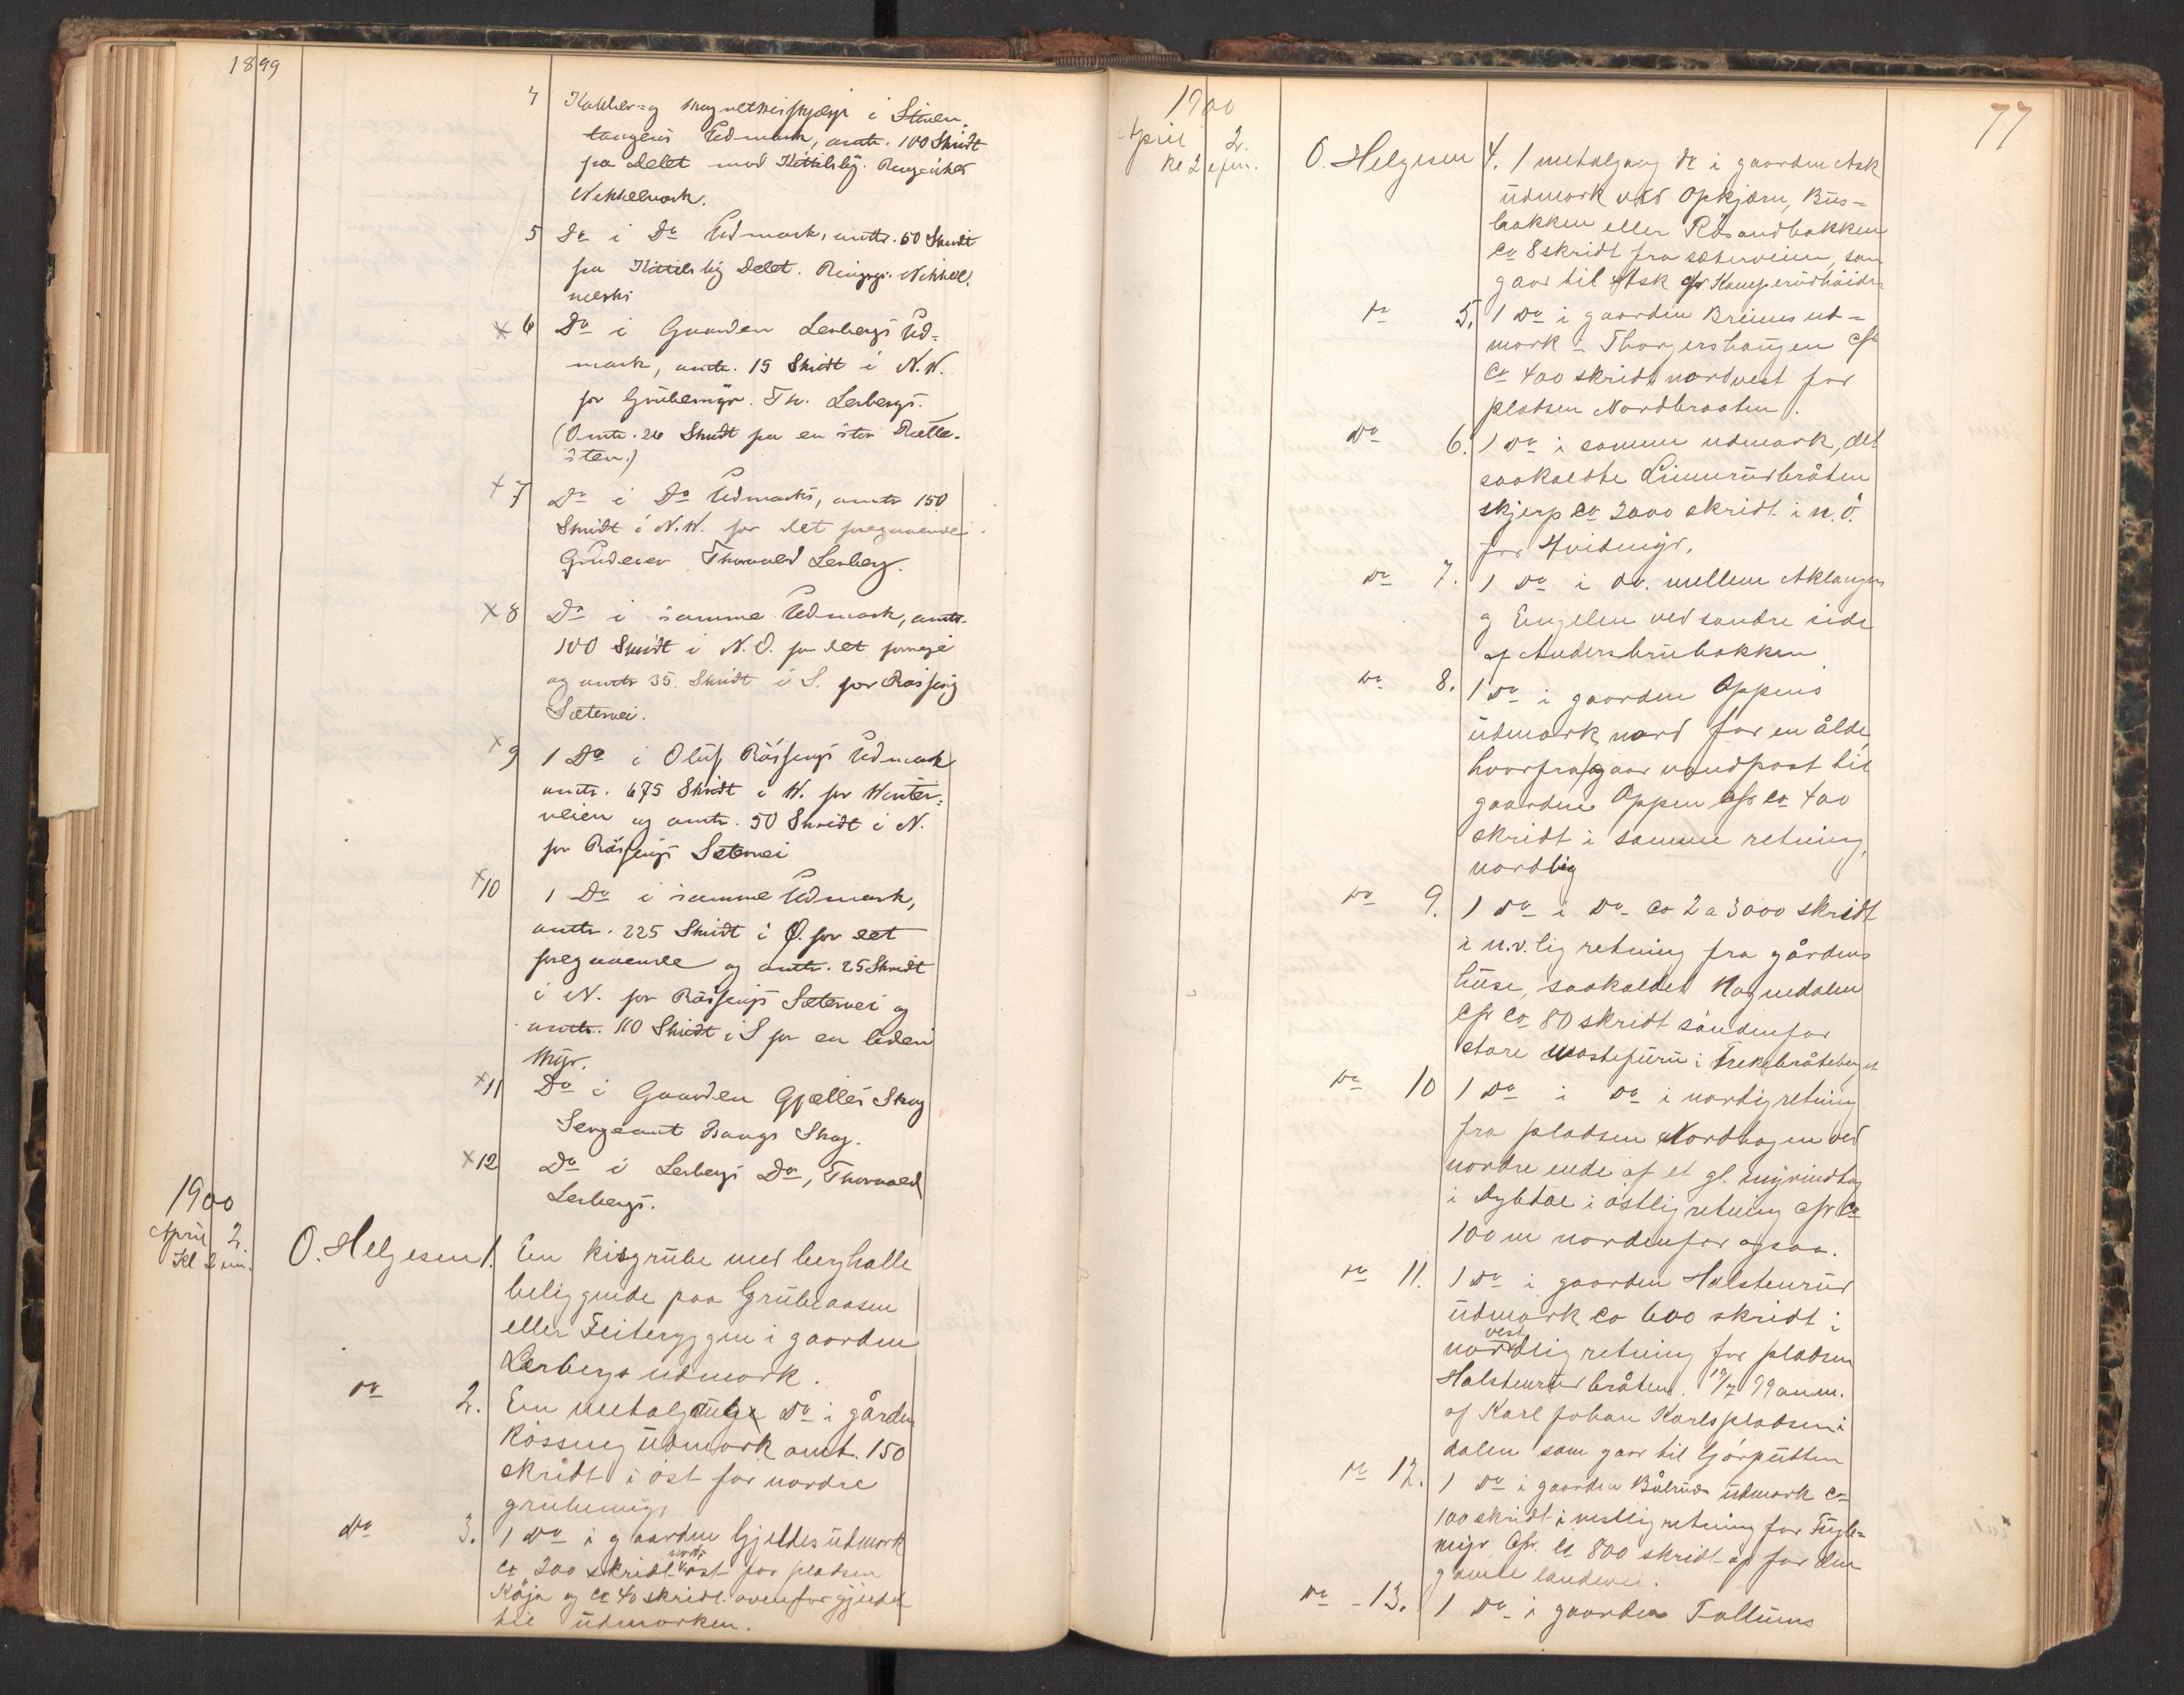 1899
4 Kobber- og magnetkisskjærp i Stuen-
tangens Udmark, omtr. 100 Skridt
fra Delet mod Kittilsby. Ringerikes
Nikkelverk.
5 Do i Do Udmark, omtr. 50 Skridt
fra Kittilsby Delet. Ringrgs. Nikkel-
verks
x 6 Do i Gaarden Lerbergs Ud-
mark, omtr. 15 Skridt i N.W.
for Grubemyr. Th. Lerbergs.
(Omtr. 26 Skridt fra en stor
sten.)
x 7 Do i Do Udmarks, omtr 150
Skridt i N.W. for det foregaaende
Grundeier Thorvald Lerberg.
x 8 Do i samme Udmark, omtr.
100 Skridt i N.O. for det forrige
og omtr 35 Skridt i S. for Røssing
Sætervei.
x 9 1 Do i Oluf Røssings Udmark
omtr. 675 Skridt i W. for Winter-
veien og omtr. 50 Skridt i N.
for Røssings Sætervei
x 10 1 Do i samme Udmark,
omtr. 225 Skridt i Ø. for det
foregaaende og omtr. 25 Skridt
i N. for Røssings Sætervei og
omtr. 110 Skridt i S for en liden
Myr.
x 11 Do i Gaarden Gjælles Skog
Sergeant Haugs Skog.
x 12 Do i Lerbergs Do, Thorvald
Lerbergs.
1900
April 2.
Kl 2 em.
O. Helgesen 1. En kisgrube med berghalle
beliggende paa Grubeaasen
eller Feiteryggen i gaarden
Lerbergs udmark.
Do 2. En metalgang Do i gården
Røssing udmark omt. 150
skridt i øst for nordre
grubemyr,
Do 3. 1 Do i gaarden Gjeldes udmark
ca 200 skridt nord-vost for pladsen
Køja og ca 40 skridt ovenfor gjerdet
til udmarken.
77
1900
April 2.
Kl 2 efm.
O. Helgesen 4. 1 metalgang Do i gaarden Ask
udmark ved Opkjørn, Bus-
bakken eller Røsandbakken
ca 8 skridt fra sæterveien, som
gaar til Ask
Do 5. 1 Do i gaarden Breiens ud-
mark - Thorgershaugen
ca 400 skridt nordvest for
pladsen Nordbraaten.
Do 6. 1 Do i samme udmark, det
saakaldte Linnerudbråten
skjerp ca 2000 skridt i n.ø.
for Hvidmyr.
Do 7. 1 Do i Do. mellem Aklangen
og Engelen ved søndre side
af Andersbrubakken
Do 8. 1 Do i gaarden Oppens
udmark nord for en ålde,
hvorfra gaar vandpost til
gaarden Oppen ca 400
skridt i samme retning,
nordlig
Do 9. 1 Do i Do ca 2 a 3000 skridt
i n.v.lig retning fra gårdens
huse, saakaldet Hognedalen
ca 80 skridt søndenfor
store mastefuru i Trekebråteberget
Do 10 1 Do i Do i nordlig retning
fra pladsen Nordhagen ved
nordre ende af et gl. myrindtag
i Dybdal i østlig retning ca
100 m nordenfor ogsaa.
Do 11. 1 Do i gaarden Halstenrud
udmark ca 600 skridt i
nordvestlig retning for pladsen
Halstenrudbråten. 19/7 99 anm.
af Karl Johan Karlspladsen i
dalen som gaar til Gjørputten
Do 12. 1 Do i gaarden Bålrud udmark ca
100 skridt i vestlig retning for Fugle-
myr ca 800 skridt op for den
gamle landevei.
Do - 13. 1 Do i gaarden Tollums